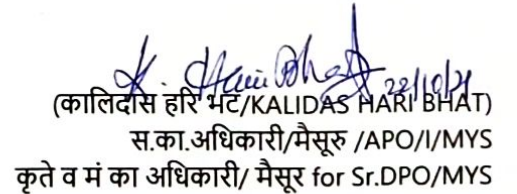 K. Hari Bhat 22/10/21
(कालिदास हरि भट/KALIDAS HARI BHAT)
स.का.अधिकारी/मैसूरु /APO/I/MYS
कृते व मं का अधिकारी/ मैसूर for Sr.DPO/MYS